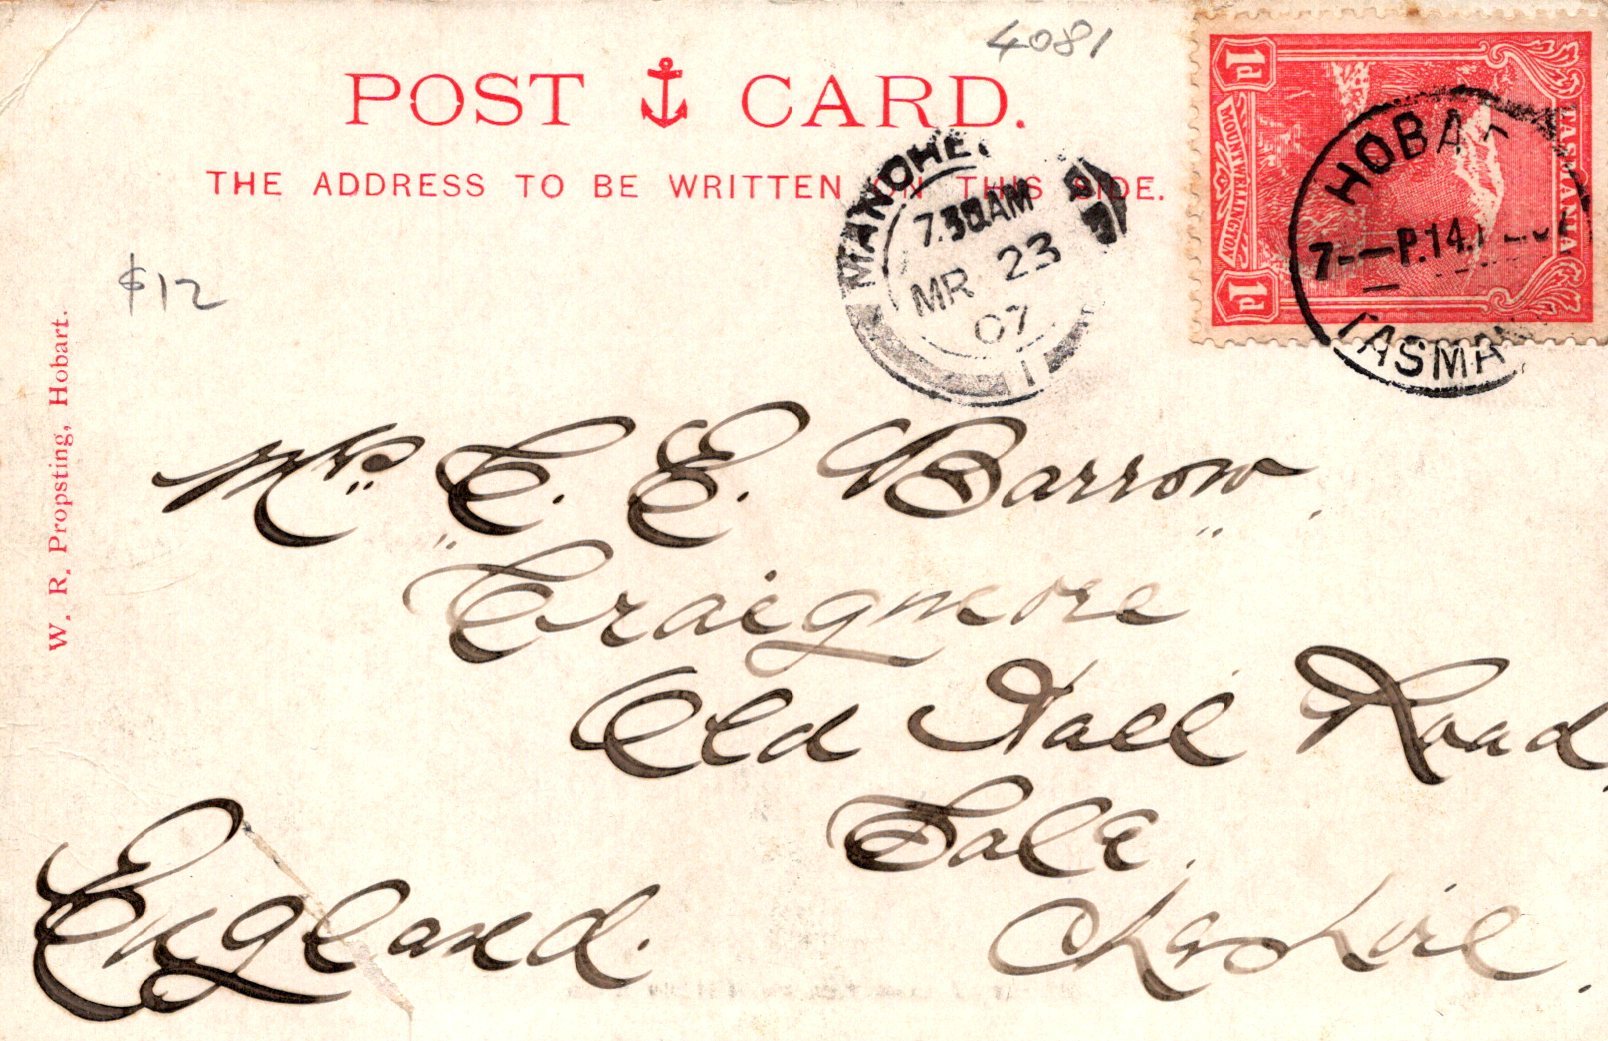 4081
POST CARD.
THE ADDRESS TO BE WRITTEN ON THIS SIDE.
1d
TASMANIA
MOUNT WELLINGTON
1d
HOBA
7 - P. 14.
TASMAN
MANCHE
7.30AM
MR 23
07
1
$12
W. R. Propsting, Hobart.
Mr. C. E. Barrow,
"Craigmore"
Old Hall Road,
Sale.
England. Cheshire.